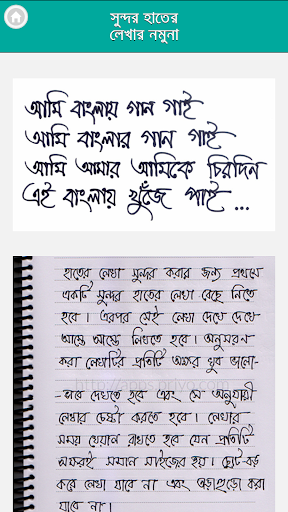 সুন্দর হাতের
লেখার নমুনা
আমি বাংলায় গান গাই
আমি বাংলার গান গাই
আমি আমার আমিকে চিরদিন
এই বাংলায় খুঁজে পাই ...
হাতের লেখা সুন্দর করার জন্য প্রথমে
একটি সুন্দর হাতের লেখা বেছে নিতে
হবে । এরপর সেই লেখা দেখে দেখে
আস্তে আস্তে লিখতে হবে । অনুসরণ
করা লেখাটির প্রতিটি অক্ষর খুব ভালো-
http://apps.priyo.com
-ভাবে দেখতে হবে এবং সে অনুযায়ী
লেখার চেষ্টা করতে হবে । লেখার
সময় খেয়াল রাখতে হবে যেন প্রতিটি
অক্ষরই সমান সাইজের হয় । ছোট-বড়
করে লেখা যাবে না এবং তাড়াহুড়ো করা
যাবে না ।